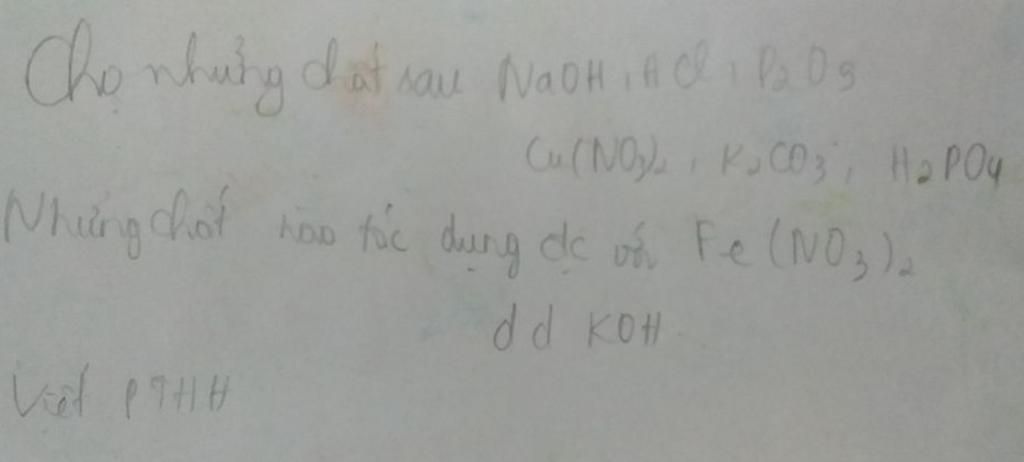 Cho những chất sau NaOH, HCl, P₂O₅
Cu(NO₃)₂, K₂CO₃, H₂PO₄
Những chất nào tác dụng đc với Fe(NO₃)₂
dd KOH
Viết PTHH